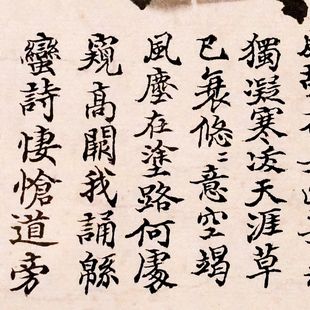 獨凝寒凌天涯草
已衰意空竭
風塵在塗路何處
窺高闕我誦緜
蠻詩悽愴道旁